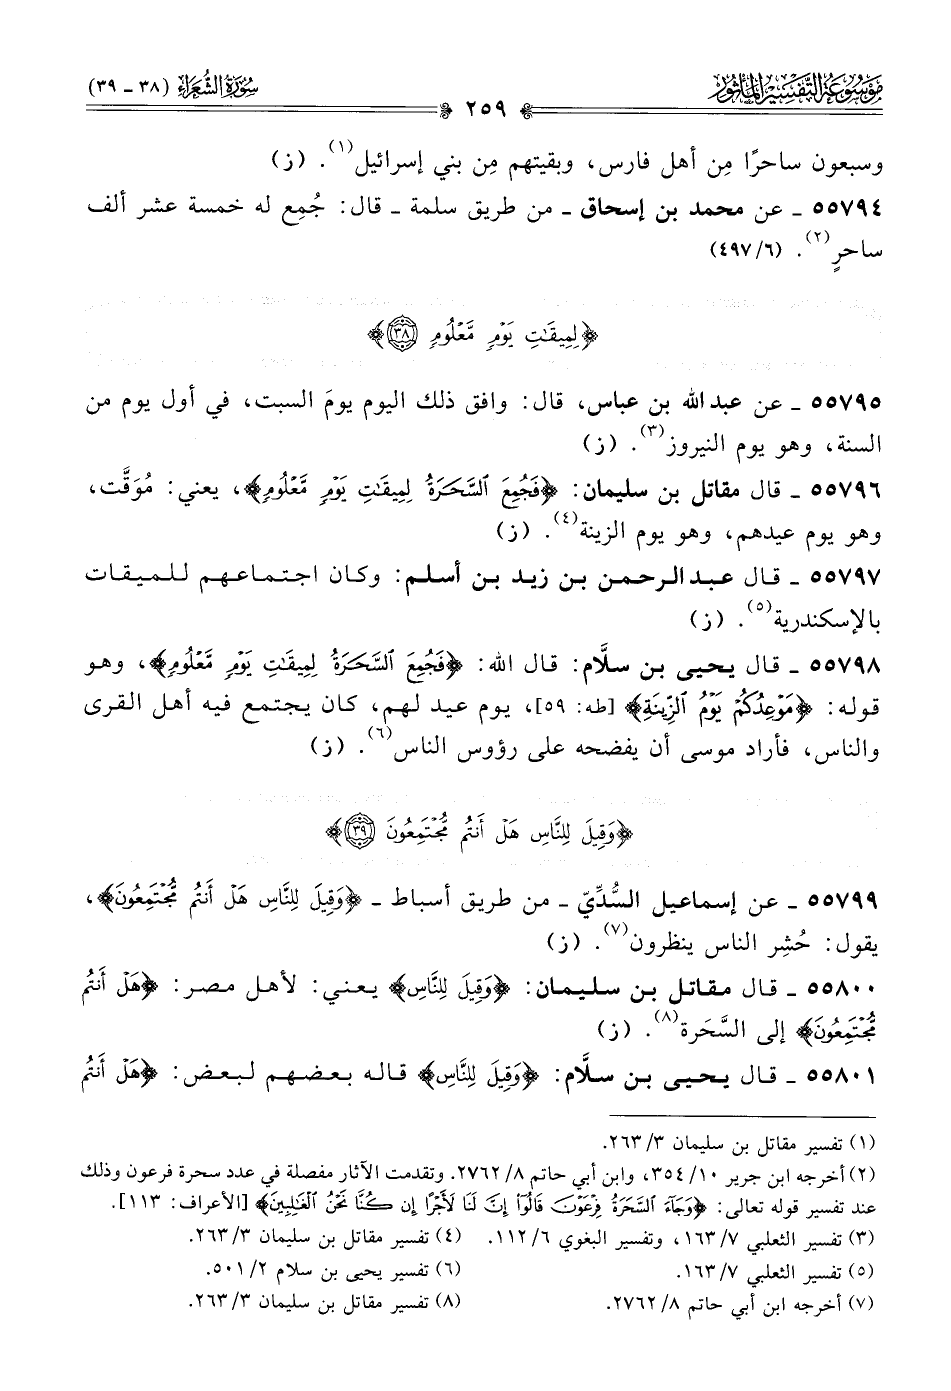 مَوْسُوعَة التَّفْسِير المَأْثُور
سُورَةُ الشُّعَرَاء (٣٨ - ٣٩)
٢٥٩
وسبعون ساحرًا مِن أهل فارس، وبقيتهم مِن بني إسرائيل(١). (ز)
٥٥٧٩٤ ـ عن محمد بن إسحاق ـ من طريق سلمة ـ قال: جُمِع له خمسة عشر ألف
ساحرٍ(٢). (٤٩٧/٦)
﴿لِمِيقَٰتِ يَوْمٖ مَّعْلُومٖ ٣٨﴾
٥٥٧٩٥ ـ عن عبد الله بن عباس، قال: وافق ذلك اليوم يومَ السبت، في أول يوم من
السنة، وهو يوم النيروز(٣). (ز)
٥٥٧٩٦ ـ قال مقاتل بن سليمان: ﴿فَجُمِعَ ٱلسَّحَرَةُ لِمِيقَٰتِ يَوْمٖ مَّعْلُومٖ﴾، يعني: مُوَقَّت،
وهو يوم عيدهم، وهو يوم الزينة(٤). (ز)
٥٥٧٩٧ ـ قال عبد الرحمن بن زيد بن أسلم: وكان اجتماعهم للميقات
بالإسكندرية(٥). (ز)
٥٥٧٩٨ ـ قال يحيى بن سلَّام: قال الله: ﴿فَجُمِعَ ٱلسَّحَرَةُ لِمِيقَٰتِ يَوْمٖ مَّعْلُومٖ﴾، وهو
قوله: ﴿مَوْعِدُكُمْ يَوْمُ ٱلزِّينَةِ﴾ [طه: ٥٩]، يوم عيد لهم، كان يجتمع فيه أهل القرى
والناس، فأراد موسى أن يفضحه على رؤوس الناس(٦). (ز)
﴿وَقِيلَ لِلنَّاسِ هَلْ أَنتُم مُّجْتَمِعُونَ ٣٩﴾
٥٥٧٩٩ ـ عن إسماعيل السُّدِّيّ ـ من طريق أسباط ـ ﴿وَقِيلَ لِلنَّاسِ هَلْ أَنتُم مُّجْتَمِعُونَ﴾،
يقول: حُشِر الناس ينظرون(٧). (ز)
٥٥٨٠٠ ـ قال مقاتل بن سليمان: ﴿وَقِيلَ لِلنَّاسِ﴾ يعني: لأهل مصر: ﴿هَلْ أَنتُم
مُّجْتَمِعُونَ﴾ إلى السَّحَرة(٨). (ز)
٥٥٨٠١ ـ قال يحيى بن سلَّام: ﴿وَقِيلَ لِلنَّاسِ﴾ قاله بعضهم لبعض: ﴿هَلْ أَنتُم
(١) تفسير مقاتل بن سليمان ٢٦٣/٣.
(٢) أخرجه ابن جرير ٣٥٤/١٠، وابن أبي حاتم ٢٧٦٢/٨. وتقدمت الآثار مفصلة في عدد سحرة فرعون وذلك
عند تفسير قوله تعالى: ﴿وَجَآءَ ٱلسَّحَرَةُ فِرْعَوْنَ قَالُوٓا۟ إِنَّ لَنَا لَأَجْرًا إِن كُنَّا نَحْنُ ٱلْغَٰلِبِينَ﴾ [الأعراف: ١١٣].
(٣) تفسير الثعلبي ١٦٣/٧، وتفسير البغوي ١١٢/٦. (٤) تفسير مقاتل بن سليمان ٢٦٣/٣.
(٥) تفسير الثعلبي ١٦٣/٧. (٦) تفسير يحيى بن سلام ٥٠١/٢.
(٧) أخرجه ابن أبي حاتم ٢٧٦٢/٨. (٨) تفسير مقاتل بن سليمان ٢٦٣/٣.